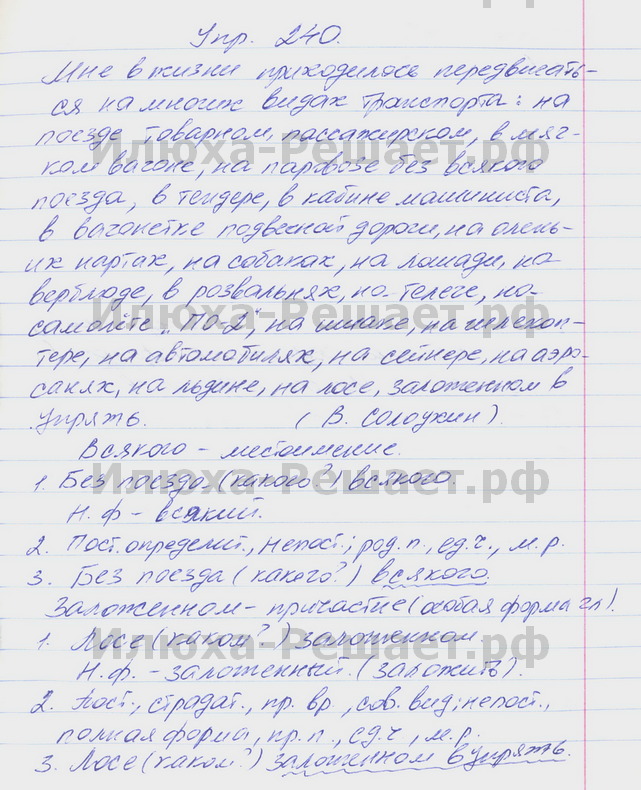 Упр. 240.
Мне в жизни приходилось передвигать-
ся на многих видах транспорта: на
поезде товарном, пассажирском, в мяг-
ком вагоне, на паровозе без всякого
поезда, в тендере, в кабине машиниста,
в вагонетке подвесной дороги, на олень-
их нартах, на собаках, на лошади, на
верблюде, в розвальнях, на телеге, на
самолёте "ПО-2", на ишаке, на геликоп-
тере, на автомобилях, на сейнере, на аэро-
санях, на льдине, на лосе, заложенном в
упряжь. (В. Солоухин).
Всякого - местоимение.
1. Без поезда (какого?) всякого.
Н.ф - всякий.
2. Пост. определит., непост.; род.п., ед.ч., м.р.
3. Без поезда (какого?) всякого
Заложенном - причастие (особая форма гл).
1. Лосе (каком?) заложенном.
Н.ф. - заложенный. (заложить).
2. Пост., страдат., пр. вр., сов. вид; непост.,
полная форма, пр.п., ед.ч, м.р.
3. Лосе (каком?) заложенном в упряжь.
Илюха-Решает.рф
Илюха-Решает.рф
Илюха-Решает.рф
Илюха-Решает.рф